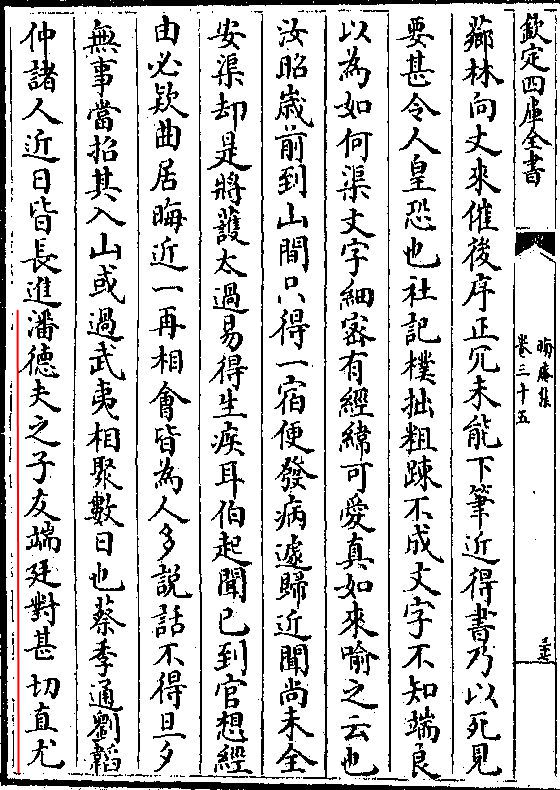 欽定四庫全書
晦庵集
卷三十五
薌林向文來催後序正冗未能下筆近得書乃以死見
要甚令人皇恐也社記樸拙粗踈不成文字不知端良
以為如何渠文字細密有經緯可愛真如來喻之云也
汝昭歲前到山間只得一宿便發病遽歸近聞尚未全
安渠却是將護太過易得生疾耳伯起聞已到官想經
由必欵曲居晦近一再相會皆為人多説話不得旦夕
無事當招其入山或過武夷相聚數日也蔡季通劉韜
仲諸人近日皆長進潘德夫之子友端廷對甚切直尤